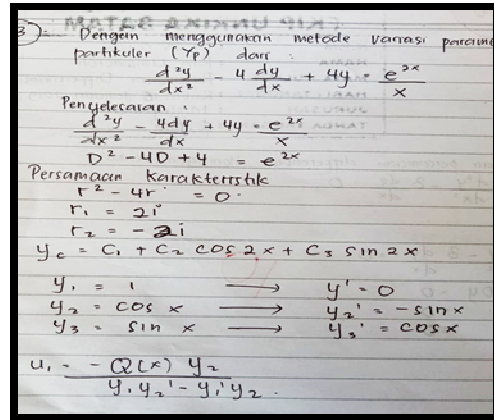 3). Dengan menggunakan metode variasi param
partikuler (Yp) dari :
d²y/dx² - 4 dy/dx + 4y = e²ˣ/x
Penyelesaian :
d²y/dx² - 4dy/dx + 4y = e²ˣ/x
D² - 4D + 4 = e²ˣ
Persamaan Karakteristik
r² - 4r = 0
r₁ = 2i
r₂ = -2i
yc = C₁ + C₂ cos 2x + C₃ sin 2x
y₁ = 1 → y' = 0
y₂ = cos x → y₂' = -sin x
y₃ = sin x → y₃' = cos x
u₁ = -Q(x) y₂ / y₁y₂' - y₁'y₂